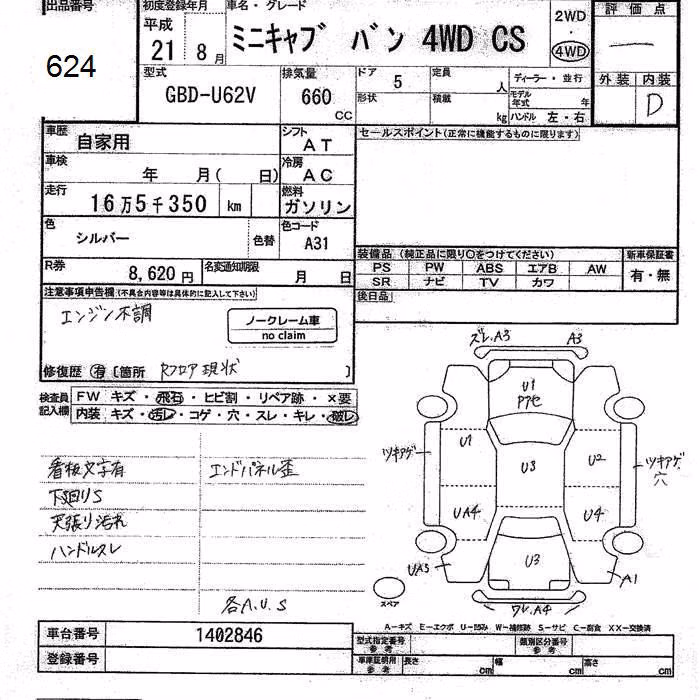 出品番号 初度登録年月 車名・グレード 評価点
624
平成 21年 8月 ミニキャブ バン 4WD CS 2WD ・ 4WD ―
型式 排気量 ドア 5 定員 人 ディーラー・並行 外装 内装
GBD-U62V 660 CC 形状 積載 kg モデル年式 年 D
ハンドル 左・右
車歴 自家用 シフト AT セールスポイント(正常に機能するものに限ります)
車検 年 月( 日) 冷房 AC
走行 16万5千350 km 燃料 ガソリン
色 シルバー 色替 色コード A31
装備品 (純正品に限り○をつけてください) 新車保証書
PS PW ABS エアB AW 有・無
SR ナビ TV カワ
R券 8,620円 名変通知期限 月 日
後日品
注意事項申告欄(不具合内容等は具体的に記入して下さい)
エンジン不調
ノークレーム車
no claim
修復歴 有 [箇所 Rフロア現状 ]
検査員記入欄 FW キズ・飛石・ヒビ割・リペア跡・×要
内装 キズ・汚レ・コゲ・穴・スレ・キレ・破レ
看板文字有 エンドパネル歪
下廻りS
天張り汚れ
ハンドルスレ
各A.U.S
ズレ.A3 A3
U1
P7セ
ツキアゲ U1 U3 U2 ツキアゲ
穴
UA4 U4
UA3 U3 A1
ワレ.A4
スペア
A-キズ E-エクボ U-凹み W-補修跡 S-サビ C-腐食 XX-交換済
車台番号 1402846 型式指定番号 参考 類別区分番号 参考
登録番号 車庫証明用 参考 長さ cm 幅 cm 高さ cm